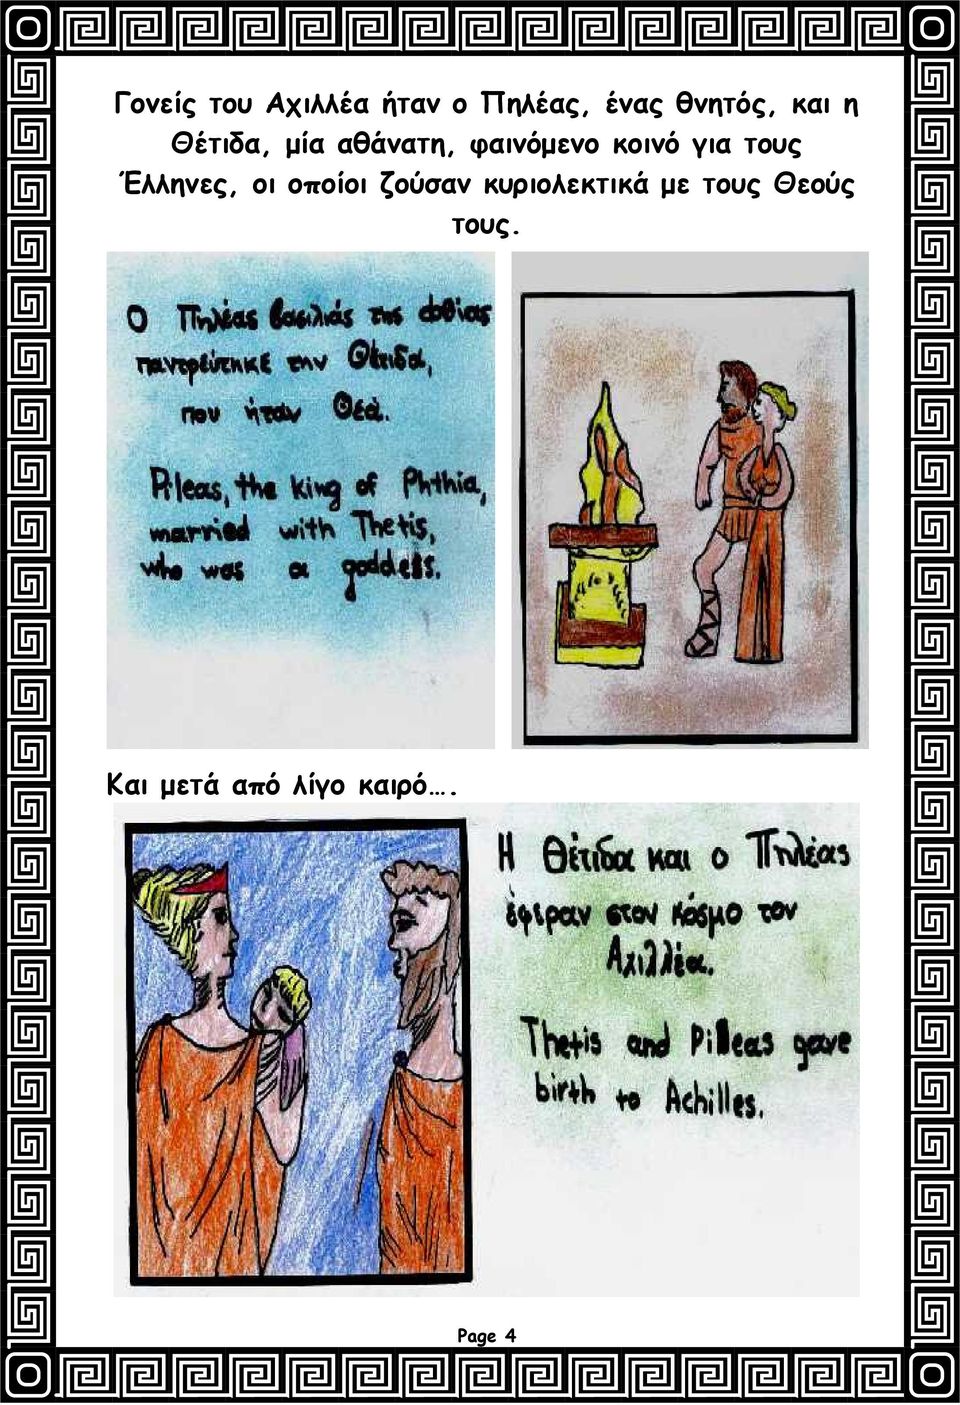 Γονείς του Αχιλλέα ήταν ο Πηλέας, ένας θνητός, και η
Θέτιδα, μία αθάνατη, φαινόμενο κοινό για τους
Έλληνες, οι οποίοι ζούσαν κυριολεκτικά με τους Θεούς
τους.
Ο Πηλέας βασιλιάς της Φθίας
παντρεύτηκε την Θέτιδα,
που ήταν Θεά.
Pileas, the king of Phthia,
married with Thetis,
who was a goddess.
Και μετά από λίγο καιρό….
Η Θέτιδα και ο Πηλέας
έφεραν στον κόσμο τον
Αχιλλέα.
Thetis and Pileas gave
birth to Achilles.
Page 4